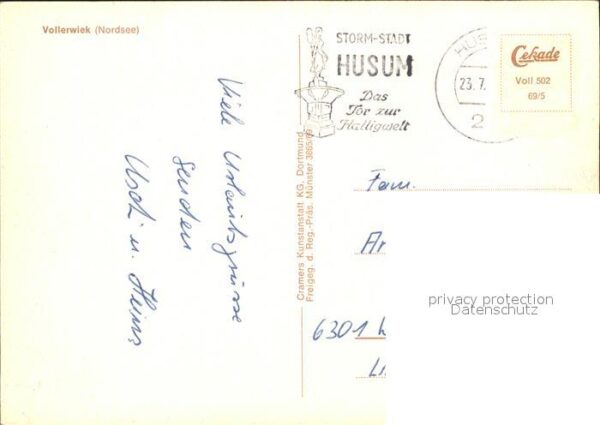 Vollerwiek (Nordsee)
STORM-STADT
HUSUM
Das
Tor zur
Halligwelt
HUS
23.7.
2
Cekade
Voll 502
69/5
Viele Urlaubsgrüsse
senden
Uschi u. Heinz
Cramers Kunstanstalt KG, Dortmund
Freigeg. d. Reg.-Präs. Münster 3865/69
Fam.
6301
privacy protection
Datenschutz